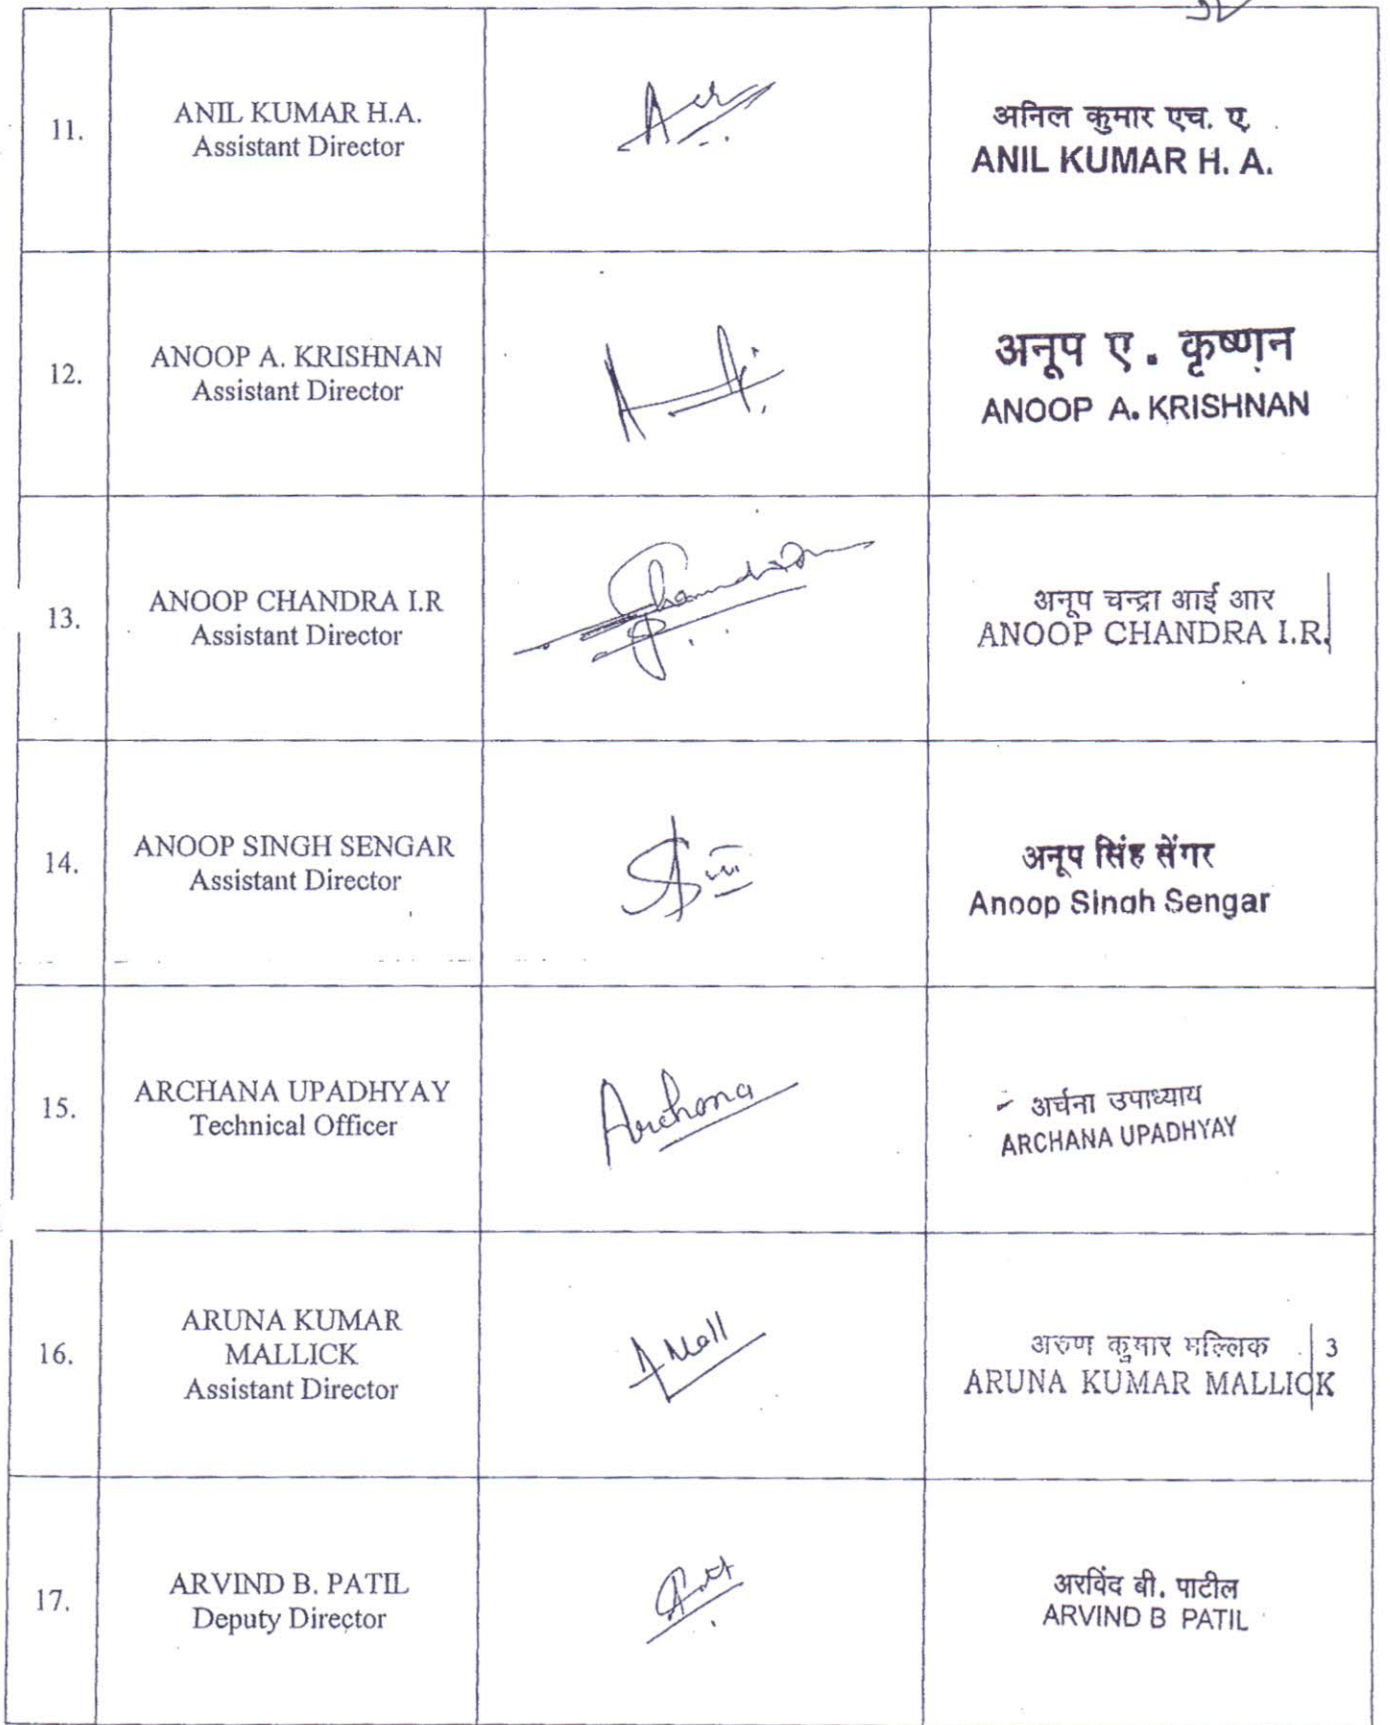 11.
ANIL KUMAR H.A.
Assistant Director
अनिल कुमार एच. ए.
ANIL KUMAR H. A.
12.
ANOOP A. KRISHNAN
Assistant Director
अनूप ए. कृष्णन
ANOOP A. KRISHNAN
13.
ANOOP CHANDRA I.R
Assistant Director
अनूप चन्द्रा आई आर
ANOOP CHANDRA I.R.
14.
ANOOP SINGH SENGAR
Assistant Director
अनूप सिंह सेंगर
Anoop Singh Sengar
15.
ARCHANA UPADHYAY
Technical Officer
Archana
अर्चना उपाध्याय
ARCHANA UPADHYAY
16.
ARUNA KUMAR
MALLICK
Assistant Director
A Mall
अरुण कुमार मल्लिक 3
ARUNA KUMAR MALLICK
17.
ARVIND B. PATIL
Deputy Director
अरविंद बी. पाटील
ARVIND B PATIL